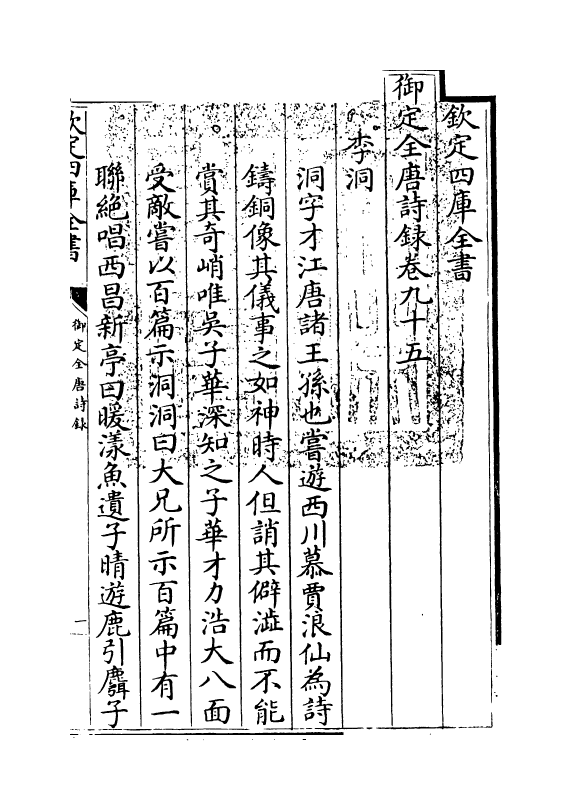 欽定四庫全書
御定全唐詩録卷九十五
李洞
洞字才江唐諸王孫也嘗遊西川慕賈浪仙為詩
鑄銅像其儀事之如神時人但誚其僻澁而不能
賞其奇峭唯吳子華深知之子華才力浩大八面
受敵嘗以百篇示洞洞曰大兄所示百篇中有一
聯絶唱西昌新亭曰暖漾魚遺子晴遊鹿引麛子
欽定四庫全書
御定全唐詩録
一